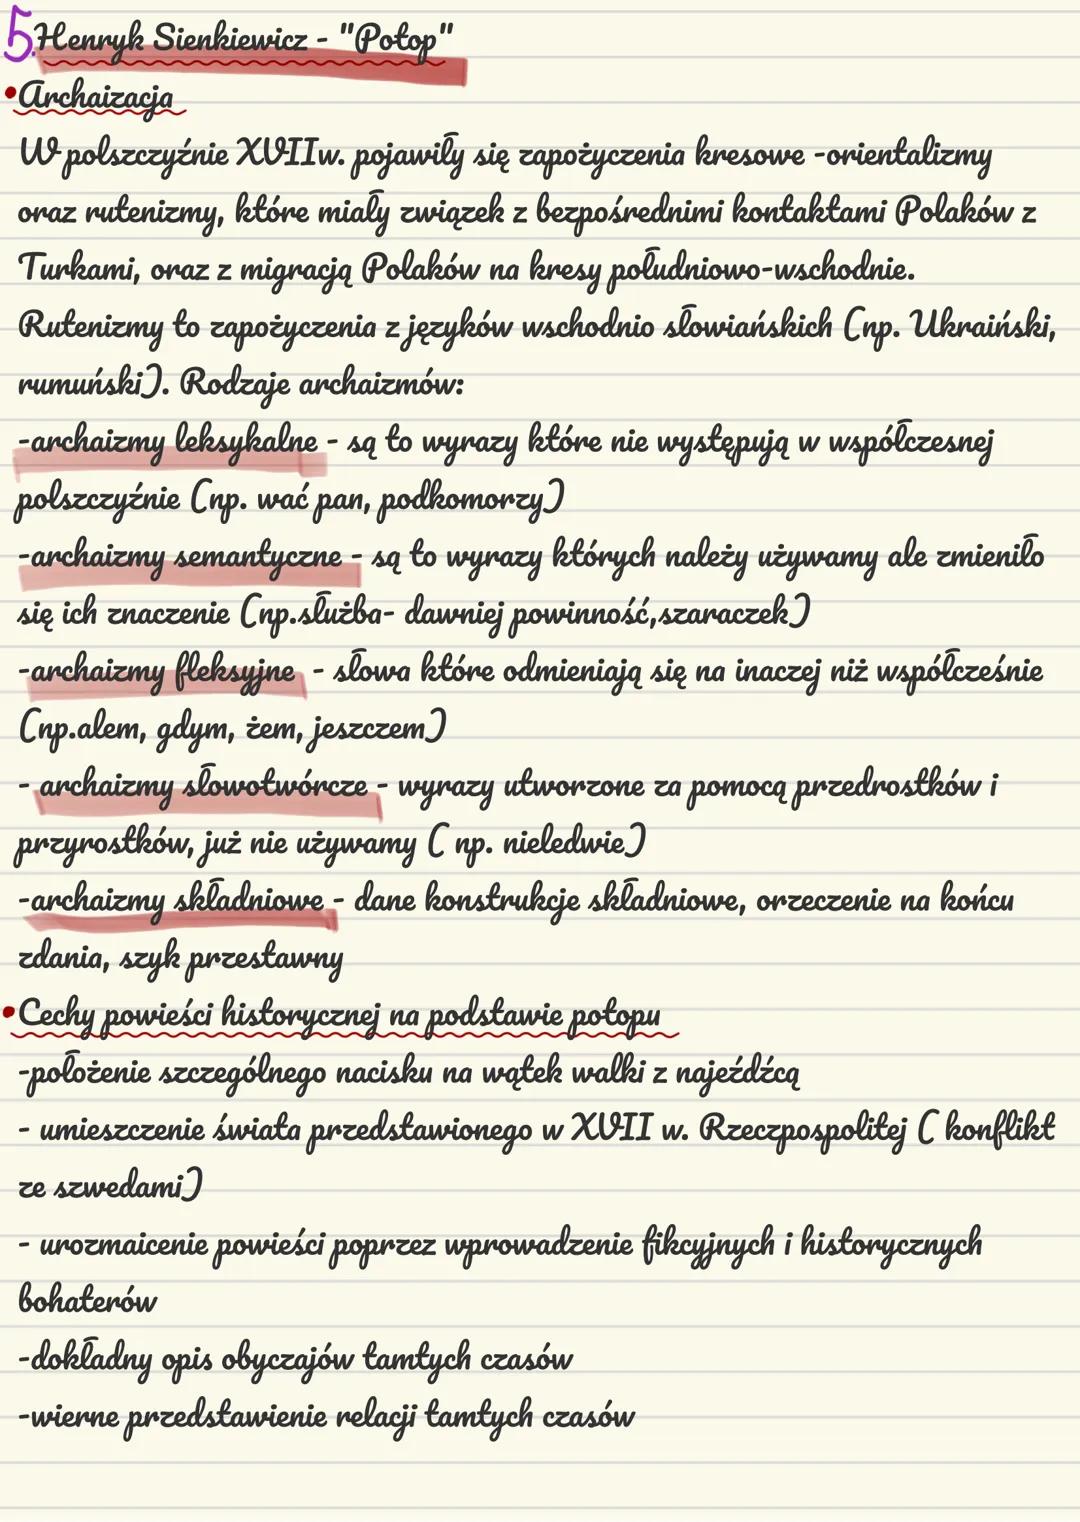 5. Henryk Sienkiewicz - "Potop"
•Archaizacja
W polszczyźnie XVIIw. pojawiły się zapożyczenia kresowe -orientalizmy
oraz rutenizmy, które miały związek z bezpośrednimi kontaktami Polaków z
Turkami, oraz z migracją Polaków na kresy południowo-wschodnie.
Rutenizmy to zapożyczenia z języków wschodnio słowiańskich (np. Ukraiński,
rumuński). Rodzaje archaizmów:
-archaizmy leksykalne - są to wyrazy które nie występują w współczesnej
polszczyźnie (np. wać pan, podkomorzy)
-archaizmy semantyczne - są to wyrazy których należy używamy ale zmieniło
się ich znaczenie (np.służba- dawniej powinność,szaraczek)
-archaizmy fleksyjne - słowa które odmieniają się na inaczej niż współcześnie
(np.alem, gdym, żem, jeszczem)
- archaizmy słowotwórcze - wyrazy utworzone za pomocą przedrostków i
przyrostków, już nie używamy ( np. nieledwie)
-archaizmy składniowe - dane konstrukcje składniowe, orzeczenie na końcu
zdania, szyk przestawny
•Cechy powieści historycznej na podstawie potopu
-położenie szczególnego nacisku na wątek walki z najeźdźcą
- umieszczenie świata przedstawionego w XVII w. Rzeczpospolitej ( konflikt
ze szwedami)
- urozmaicenie powieści poprzez wprowadzenie fikcyjnych i historycznych
bohaterów
-dokładny opis obyczajów tamtych czasów
-wierne przedstawienie relacji tamtych czasów